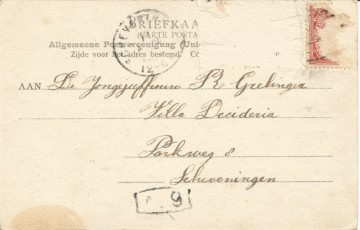 BRIEFKAA
(CARTE POSTA
Algemeene Postvereeniging (Uni
Zijde voor het adres bestemd. Cô
AAN De Jongejuffrouw R. Grelinger
Villa Decideria
Parkweg 8
Scheveningen
9